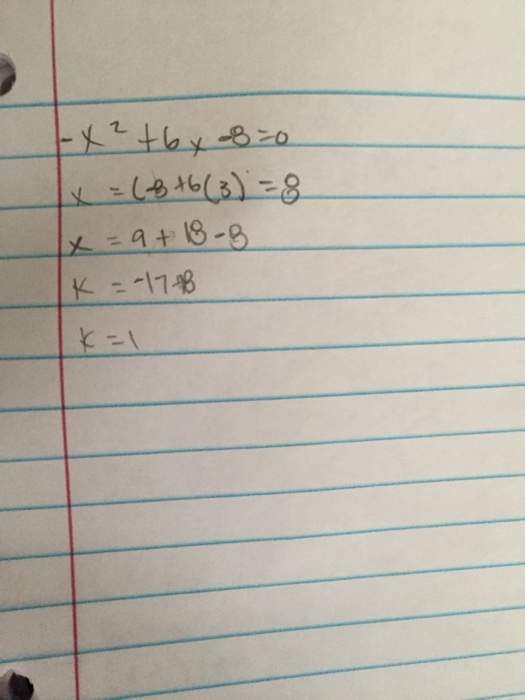 -x² + 6x - 8 = 0
x = (-3 + 6(3) = 8
x = 9 + 18 - 8
K = -17 + 18
K = 1